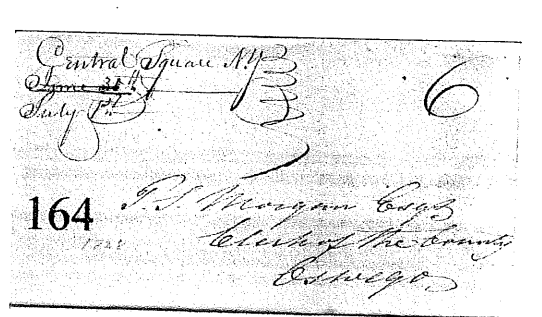 Central Square N.Y.
June 30th
July 1st
6
164
T S Morgan Esqr
Clerk of the County
Oswego